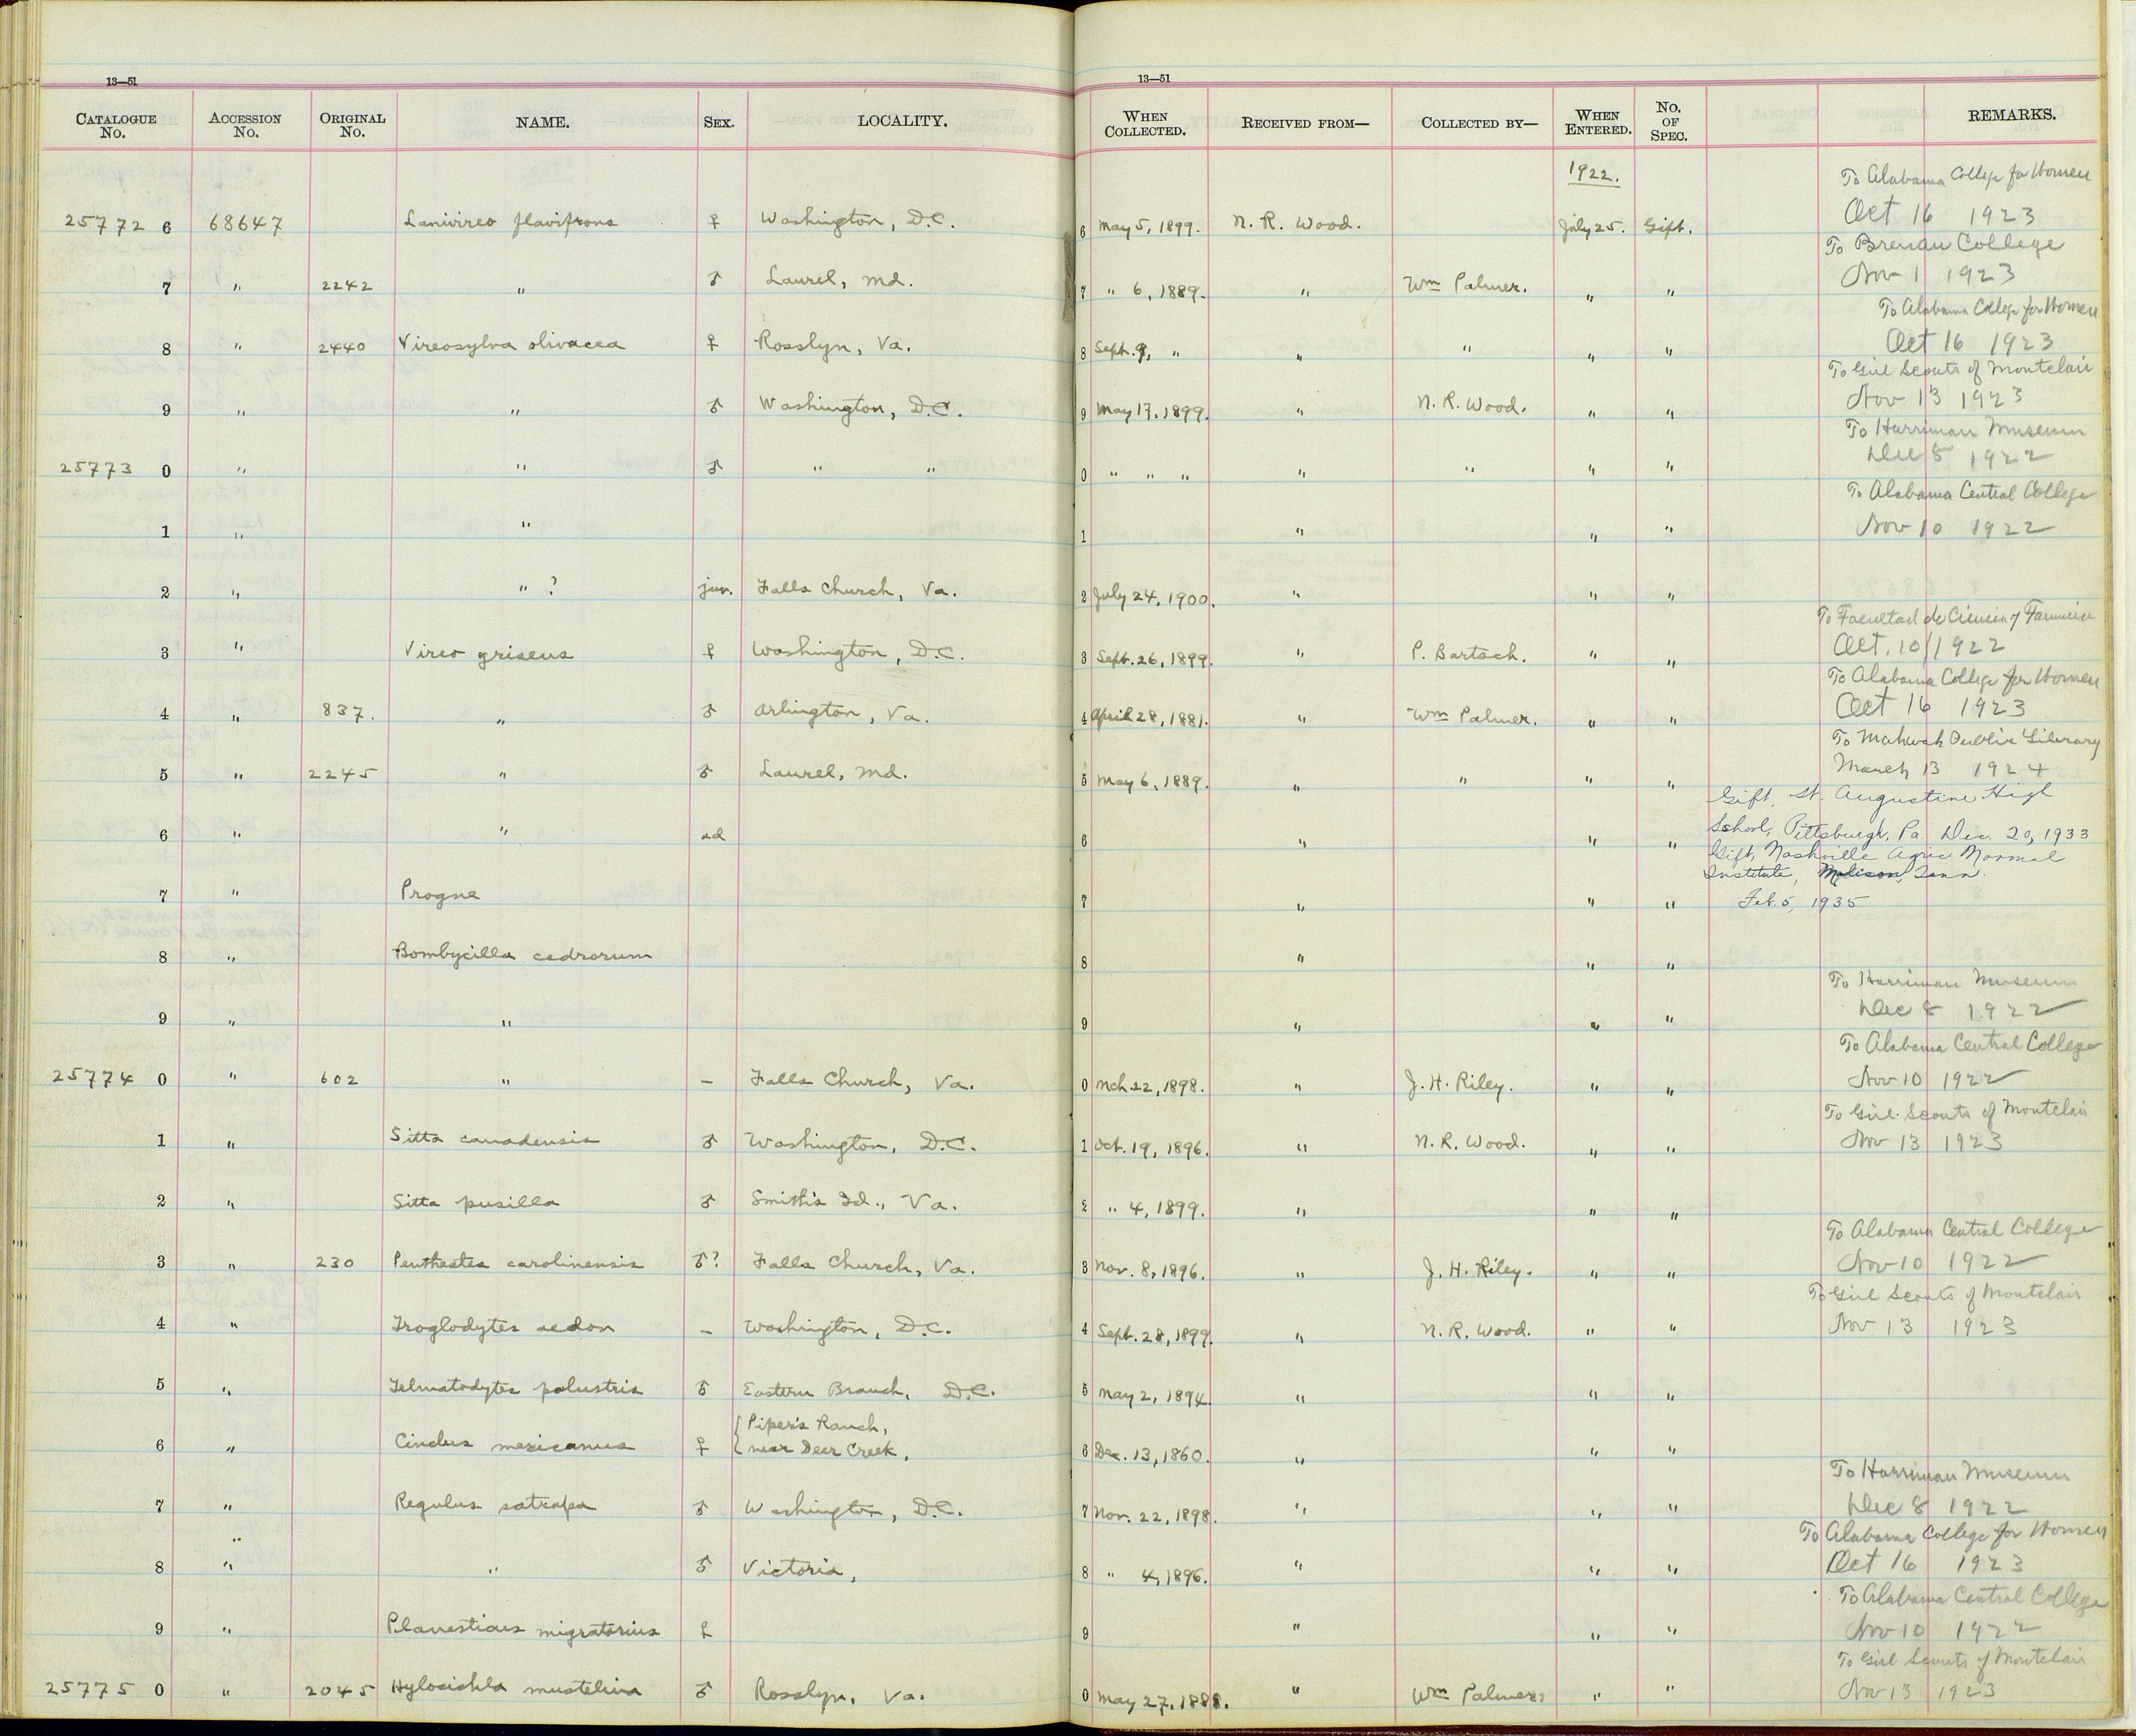 13—51
13—51
CATALOGUE No. ACCESSION No. ORIGINAL No. NAME. SEX. LOCALITY. WHEN COLLECTED. RECEIVED FROM— COLLECTED BY— WHEN ENTERED. No. OF SPEC. REMARKS.
1922.
To Alabama College for Women
25772 6 68647 Lanivireo flavifrons ♀ Washington, D.C. 6 May 5, 1899. N. R. Wood. July 25. Gift. Oct 16 1923
To Brenau College
7 " 2242 " ♂ Laurel, Md. 7 " 6, 1889. " Wm Palmer. " " Nov 1 1923
To Alabama College for Women
8 " 2440 Vireosylva olivacea ♀ Rosslyn, Va. 8 Sept. 9, " " " " " Oct 16 1923
To Girl Scouts of Montclair
9 " " ♂ Washington, D.C. 9 May 17, 1899. " N. R. Wood. " " Nov 13 1923
To Harriman Museum
25773 0 " " ♂ " " 0 " " " " " " " Dec 8 1922
To Alabama Central College
1 " " 1 " " " Nov 10 1922
2 " " ? juv. Falls Church, Va. 2 July 24, 1900. " " "
To Facultad de Ciencia y Farmacia
3 " Vireo griseus ♀ Washington, D.C. 3 Sept. 26, 1899. " P. Bartsch. " " Oct. 10 1922
To Alabama College for Women
4 " 837. " ♂ Arlington, Va. 4 April 28, 1881. " Wm Palmer. " " Oct 16 1923
To Mahwah Public Library
5 " 2245 " ♂ Laurel, Md. 5 May 6, 1889. " " " " March 13 1924
Gift, St. Augustine High
6 " " ad 6 " " " School, Pittsburgh, Pa. Dec. 20, 1933
Gift, Nashville Agric Normal
Institute, Madison, Tenn.
7 " Progne 7 " " " Feb. 5, 1935
8 " Bombycilla cedrorum 8 " " "
To Harriman Museum
9 " " 9 " " " Dec 8 1922
To Alabama Central College
25774 0 " 602 " – Falls Church, Va. 0 Mch. 22, 1898. " J. H. Riley. " " Nov 10 1922
To Girl Scouts of Montclair
1 " Sitta canadensis ♂ Washington, D.C. 1 Oct. 19, 1896. " N. R. Wood. " " Nov 13 1923
2 " Sitta pusilla ♂ Smith's Id., Va. 2 " 4, 1899. " " "
To Alabama Central College
3 " 230 Penthestes carolinensis ♂? Falls Church, Va. 3 Nov. 8, 1896. " J. H. Riley. " " Nov 10 1922
To Girl Scouts of Montclair
4 " Troglodytes aedon – Washington, D.C. 4 Sept. 28, 1899. " N. R. Wood. " " Nov 13 1923
5 " Telmatodytes palustris ♂ Eastern Branch, D.C. 5 May 2, 1894. " " "
Piper's Ranch,
6 " Cinclus mexicanus ♀ near Deer Creek, 6 Dec. 13, 1860. " " "
To Harriman Museum
7 " Regulus satrapa ♂ Washington, D.C. 7 Nov. 22, 1898. " " " Dec 8 1922
To Alabama College for Women
8 " " ♂ Victoria, 8 " 4, 1896. " " " Oct 16 1923
To Alabama Central College
9 " Planesticus migratorius ♀ 9 " " " Nov 10 1922
To Girl Scouts of Montclair
25775 0 " 2045 Hylocichla mustelina ♂ Rosslyn, Va. 0 May 27, 1888. " Wm Palmer. " " Nov 13 1923